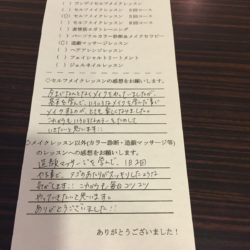 ( ) ワンデイセルフメイクレッスン
( ) セルフメイクレッスン 3回コース
(○) セルフメイクレッスン 5回コース
( ) セルフメイクレッスン 8回コース
( ) 表情筋エクストレーニング
( ) パーソナルカラー診断&メイクセラピー
(○) 造顔マッサージレッスン
( ) ヘアアレンジレッスン
( ) フェイシャルトリートメント
( ) ジェルネイルレッスン
◇セルフメイクレッスンの感想をお願いします。
今までなんとなくメイクをやっていましたが、
基本を学んで、
メイクするのが、とても楽しくなりました。
これからもいろいろなカラーをためして
いきたいと思います!!
◇メイクレッスン以外(カラー診断・造顔マッサージ等)
のレッスンへの感想をお願いします。
造顔マッサージを学んで、1日2回
やる事で、アゴのあたりがスッキリしたような
気がします!! これからも毎日コツコツ
やっていきたいと思います。
ありがとうございました!!
ありがとうございました!